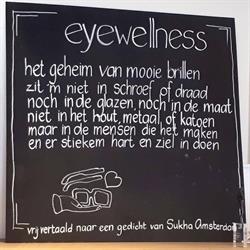 eyewellness
het geheim van mooie brillen
zit 'm niet in schroef of draad
noch in de glazen, noch in de maat
niet in het hout, metaal, of katoen
maar in de mensen die het maken
en er stiekem hart en ziel in doen
vrij vertaald naar een gedicht van Sukha Amsterdam